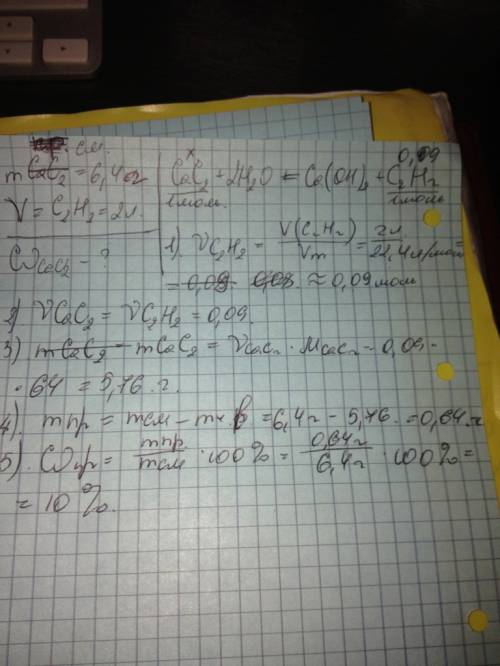 см.
m CaC₂ = 6,4 г
V = C₂H₂ = 2л.
ω CaC₂ - ?
x 0,09
CaC₂ + 2H₂O = Ca(OH)₂ + C₂H₂
1моль. 1моль
1) ν C₂H₂ = V(C₂H₂) / Vm = 2л. / 22,4 л/моль =
= 0,09 0,08. ≈ 0,09 моль
2) ν CaC₂ = ν C₂H₂ = 0,09.
3) m CaC₂ - m CaC₂ = ν CaC₂ · M CaC₂ = 0,09 ·
· 64 = 5,76. г.
4). m пр = m см - m ч.в = 6,4 г - 5,76. = 0,64. г
5). ω пр = m пр / m см · 100% = 0,64 г / 6,4 г · 100% =
= 10 %.